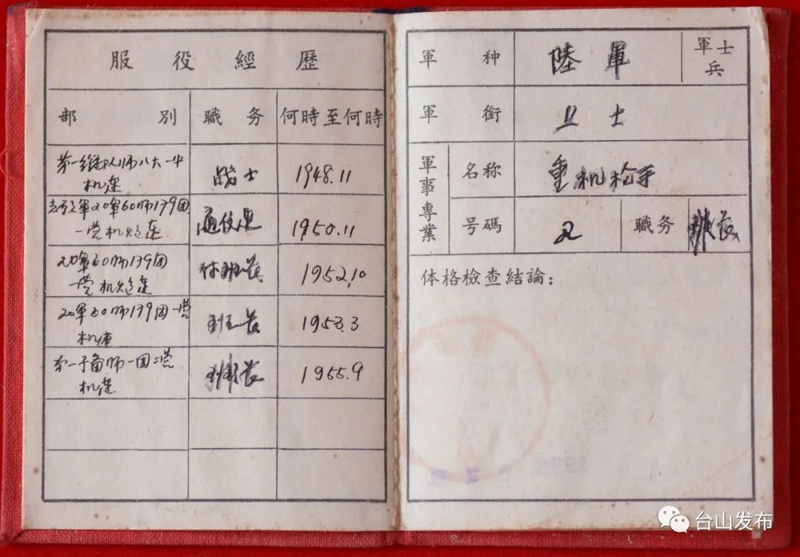 服役經歷
部別 職务 何時至何時
机連 战士 1948.11
志愿軍20軍60师179团
一营机炮連 通信員 1950.11
20軍60师179团
一营机炮連 付班长 1952.10
20軍60师179团一营
机連 班长 1953.3
第一予备师一团二营
机連 班长 1955.9
軍种 陸軍 軍士
兵
軍銜 上士
軍事專業 名称 重机枪手
号碼 2 職务 班长
体格檢查結論：
台山发布